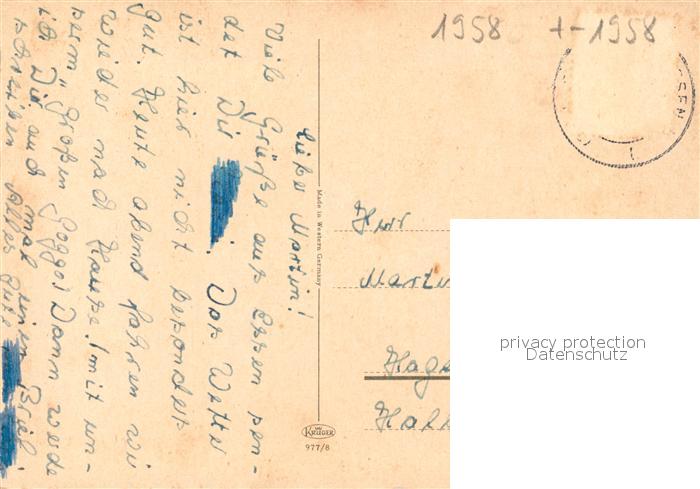 1958 +-1958
Lieber Martin!
Viele Grüße aus Essen sen-
det Dir
. Das Wetter
ist hier nicht besonders
gut. Heute abend fahren wir
wieder nach Hause! (mit un-
serm "großen Goggo) Dann werde
ich Dir auch mal einen Brief
schreiben. Alles Gute
Made in Western Germany
KRÜGER
977/8
Herr
privacy protection
Datenschutz